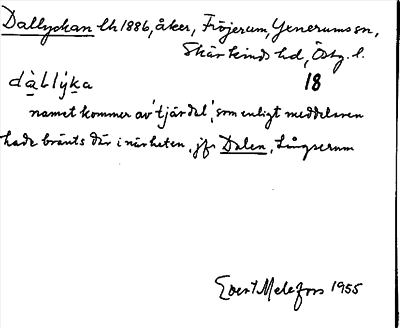 Dallyckan lh 1886, åker, Fröjerum, Yxnerums sn,
Skärkinds hd, Östg. l.
dàllýka 18
namet kommer av 'tjärdel', som enligt meddelaren
hade bränts där i närheten, jfr Dalen, Långserum
Evert Melefors 1955